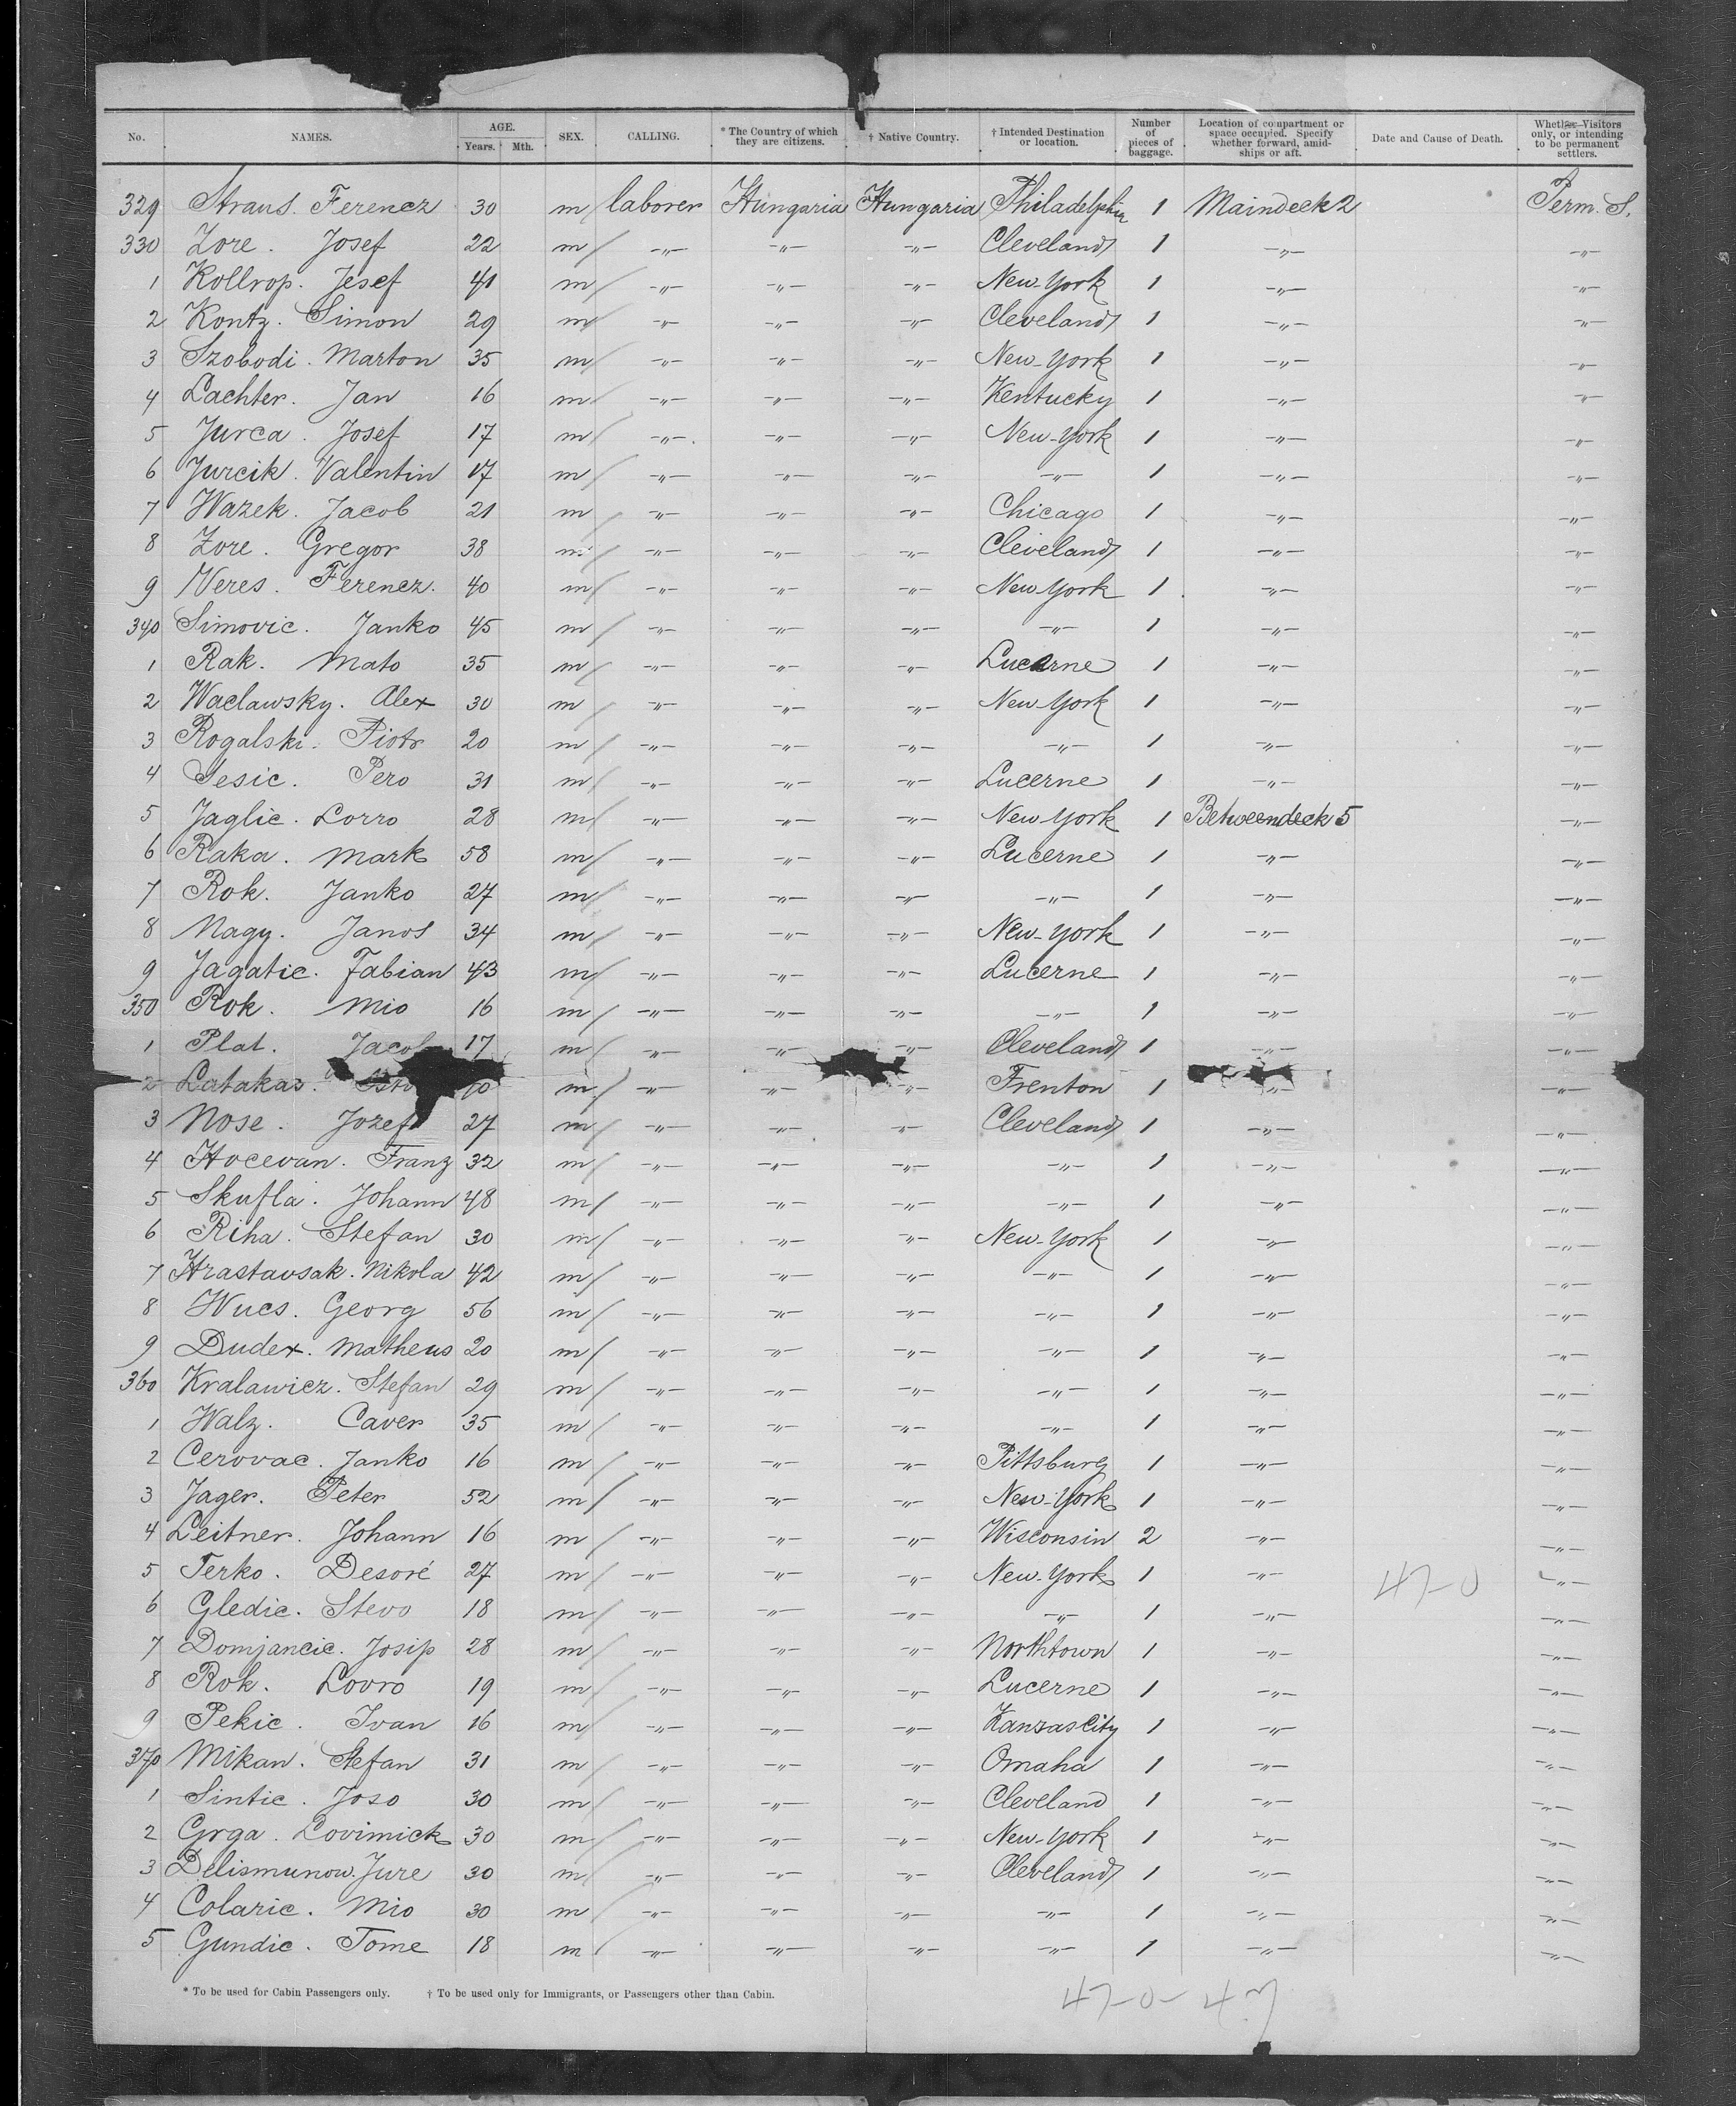 No. NAMES. AGE. Years. Mth. SEX. CALLING. * The Country of which they are citizens. † Native Country. † Intended Destination or location. Number of pieces of baggage. Location of compartment or space occupied. Specify whether forward, amidships or aft. Date and Cause of Death. Whether Visitors only, or intending to be permanent settlers.
329 Straus. Ferencz 30 m laborer Hungaria Hungaria Philadelphia 1 Maindeck 2 Perm. S.
330 Zore. Josef 22 m / -"- -"- -"- Cleveland 1 -"- -"-
1 Kollrop. Jesef 41 m / -"- -"- -"- New-York 1 -"- -"-
2 Kontz. Simon 29 m / -"- -"- -"- Cleveland 1 -"- -"-
3 Szobodi. Marton 35 m / -"- -"- -"- New-York 1 -"- -"-
4 Lachter. Jan 16 m / -"- -"- -"- Kentucky 1 -"- -"-
5 Jurca. Josef 17 m / -"- -"- -"- New-York 1 -"- -"-
6 Jurcik. Valentin 17 m / -"- -"- -"- -"- 1 -"- -"-
7 Wazek. Jacob 21 m / -"- -"- -"- Chicago 1 -"- -"-
8 Zore. Gregor 38 m / -"- -"- -"- Cleveland 1 -"- -"-
9 Veres. Ferencz. 40 m / -"- -"- -"- New York 1 -"- -"-
340 Simovic. Janko 45 m / -"- -"- -"- -"- 1 -"- -"-
1 Rak. Mato 35 m / -"- -"- -"- Lucerne 1 -"- -"-
2 Waclawsky. Alex 30 m / -"- -"- -"- New York 1 -"- -"-
3 Rogalski. Piotr 20 m / -"- -"- -"- -"- 1 -"- -"-
4 Sesic. Pero 31 m / -"- -"- -"- Lucerne 1 -"- -"-
5 Jaglic. Lorro 28 m / -"- -"- -"- New York 1 Betweendeck 5 -"-
6 Raka. Mark 58 m / -"- -"- -"- Lucerne 1 -"- -"-
7 Rok. Janko 27 m / -"- -"- -"- -"- 1 -"- -"-
8 Nagy. Janos 34 m / -"- -"- -"- New-York 1 -"- -"-
9 Jagatic. Fabian 43 m / -"- -"- -"- Lucerne 1 -"- -"-
350 Rok. Mio 16 m / -"- -"- -"- -"- 1 -"- -"-
1 Plat. Jacob 17 m / -"- -"- -"- Cleveland 1 -"- -"-
2 Latakas. m / -"- -"- -"- Trenton 1 -"- -"-
3 Nose. Jozef 27 m / -"- -"- -"- Cleveland 1 -"- -"-
4 Hocevan. Franz 32 m / -"- -"- -"- -"- 1 -"- -"-
5 Skufla. Johann 48 m / -"- -"- -"- -"- 1 -"- -"-
6 Riha. Stefan 30 m / -"- -"- -"- New-York 1 -"- -"-
7 Hrastavsak. Nikola 42 m / -"- -"- -"- -"- 1 -"- -"-
8 Wucs. Georg 56 m / -"- -"- -"- -"- 1 -"- -"-
9 Dudex. Matheus 20 m / -"- -"- -"- -"- 1 -"- -"-
360 Kralawicz. Stefan 29 m / -"- -"- -"- -"- 1 -"- -"-
1 Walz. Caver 35 m / -"- -"- -"- -"- 1 -"- -"-
2 Cerovac. Janko 16 m / -"- -"- -"- Pittsburg 1 -"- -"-
3 Jager. Peter 52 m / -"- -"- -"- New-York 1 -"- -"-
4 Leitner. Johann 16 m / -"- -"- -"- Wisconsin 2 -"- -"-
5 Terko. Desoré 27 m / -"- -"- -"- New-York 1 -"- 47-0 -"-
6 Gledic. Stevo 18 m / -"- -"- -"- -"- 1 -"- -"-
7 Domjancic. Josip 28 m / -"- -"- -"- Northtown 1 -"- -"-
8 Rok. Lovro 19 m / -"- -"- -"- Lucerne 1 -"- -"-
9 Pekic. Ivan 16 m / -"- -"- -"- Kanzas City 1 -"- -"-
370 Mikan. Stefan 31 m / -"- -"- -"- Omaha 1 -"- -"-
1 Sintic. Joso 30 m / -"- -"- -"- Cleveland 1 -"- -"-
2 Grga. Lovimick 30 m / -"- -"- -"- New-York 1 -"- -"-
3 Delismunow. Jure 30 m / -"- -"- -"- Cleveland 1 -"- -"-
4 Colaric. Mio 30 m / -"- -"- -"- -"- 1 -"- -"-
5 Gundic. Tome 18 m / -"- -"- -"- -"- 1 -"- -"-
* To be used for Cabin Passengers only. † To be used only for Immigrants, or Passengers other than Cabin.
47-0-47